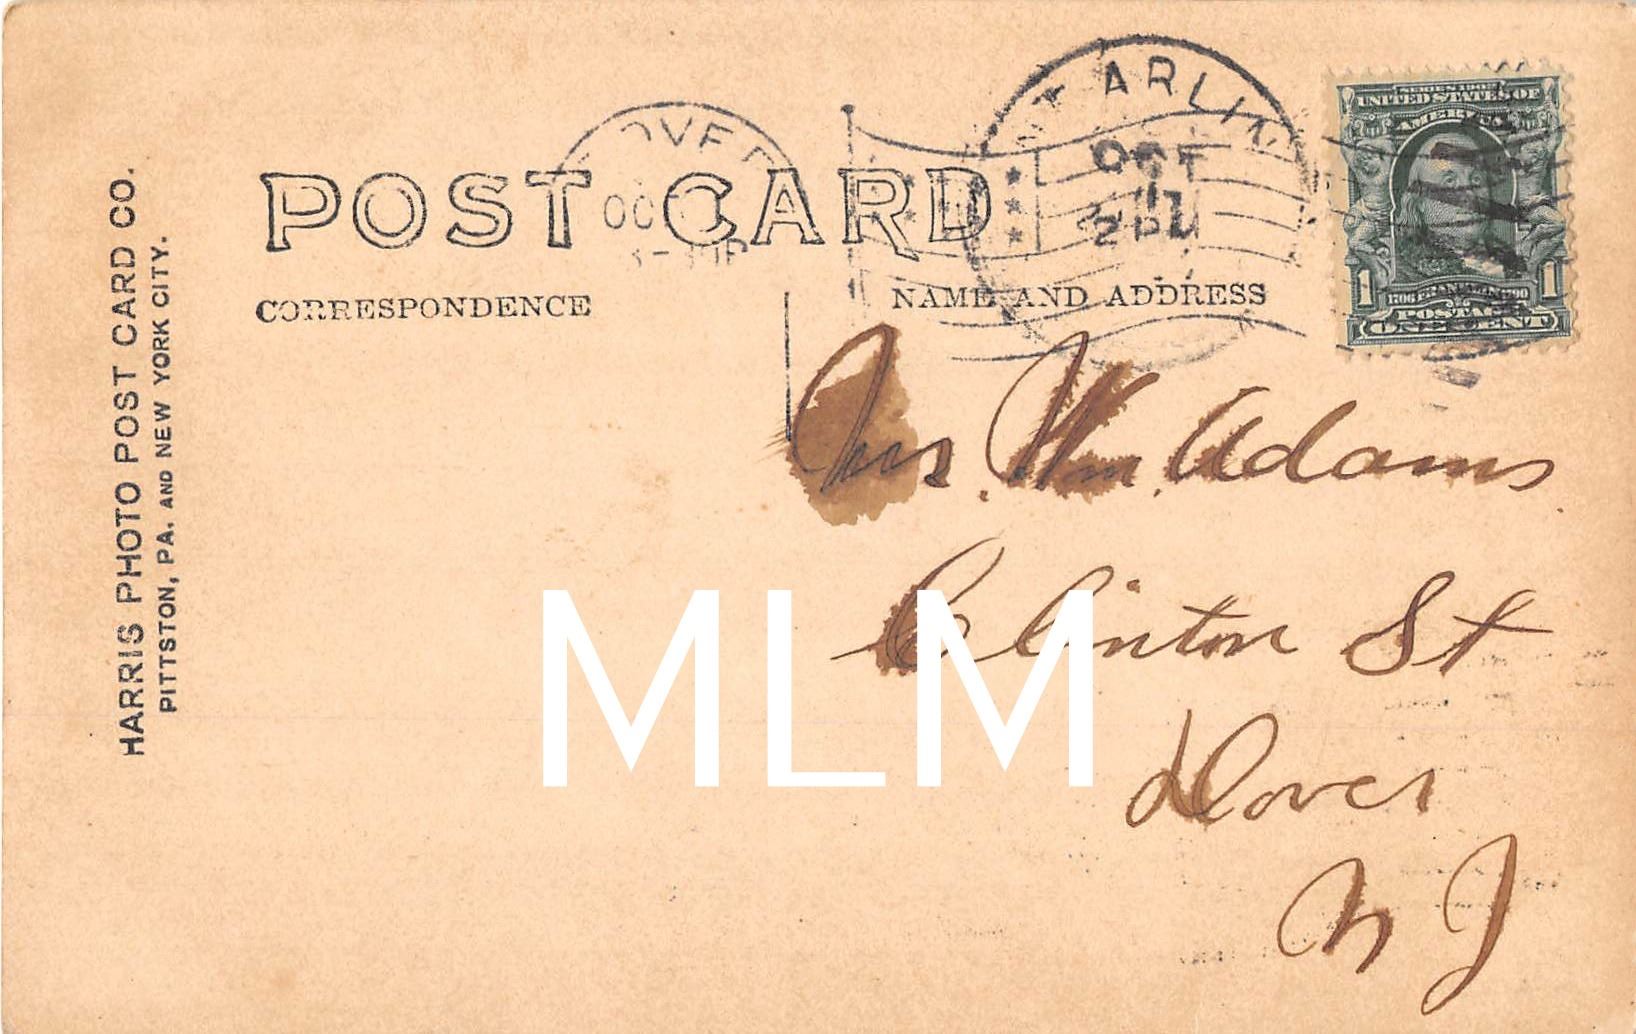 HARRIS PHOTO POST CARD CO.
PITTSTON, PA. AND NEW YORK CITY.
POST CARD
CORRESPONDENCE
NAME AND ADDRESS
OVER
OC
ARLIN
OCT
11
2 PM
SERIES 1902
UNITED STATES OF
AMERICA
1706 FRANKLIN 1790
1 1
POSTAGE
ONE CENT
Mrs. Wm. Adams
Clinton St
Dover
N J
MLM